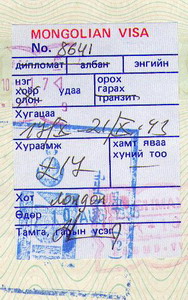 MONGOLIAN VISA
No. 8641
дипломат албан энгийн
нэг орох
хоёр удаа гарах
олон транзит
Хугацаа
21/IX-93
Хураамж хамт яваа
хүний тоо
£17
Хот лондон
Өдөр
Тамга, гарын үсэг